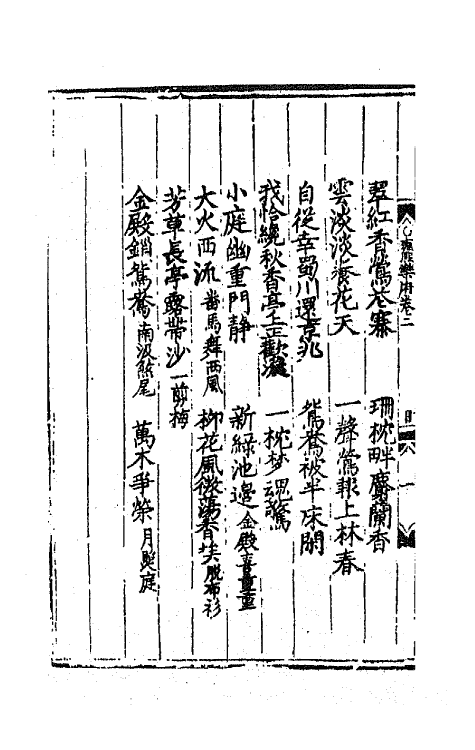 翠紅香鶯老寨　珊枕畔麝蘭香
雲淡淡養花天　一聲鶯報上林春
自從幸蜀川還京兆　鴛鴦被半床閑
我恰繞秋香亭上正歡凝　一枕梦魂驚
小庭幽重門靜　新綠池邊金殿喜重重
大火西流番馬舞西風　柳花風微蕩香埃脫布衫
芳草長亭露帶沙一剪梅
金殿鎖鴛鴦南汲煞尾　萬木爭榮月照庭
樂府卷二
目